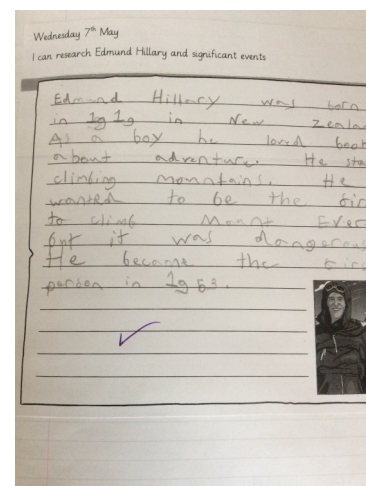 Wednesday 7th May
I can research Edmund Hillary and significant events
Edmund Hillary was born
in 1919 in New Zeala
As a boy he loved book
about adventure. He sta
climbing mountains. He
wanted to be the fir
to climb Mount Ever
but it was dangerous
He became the firs
person in 1953.